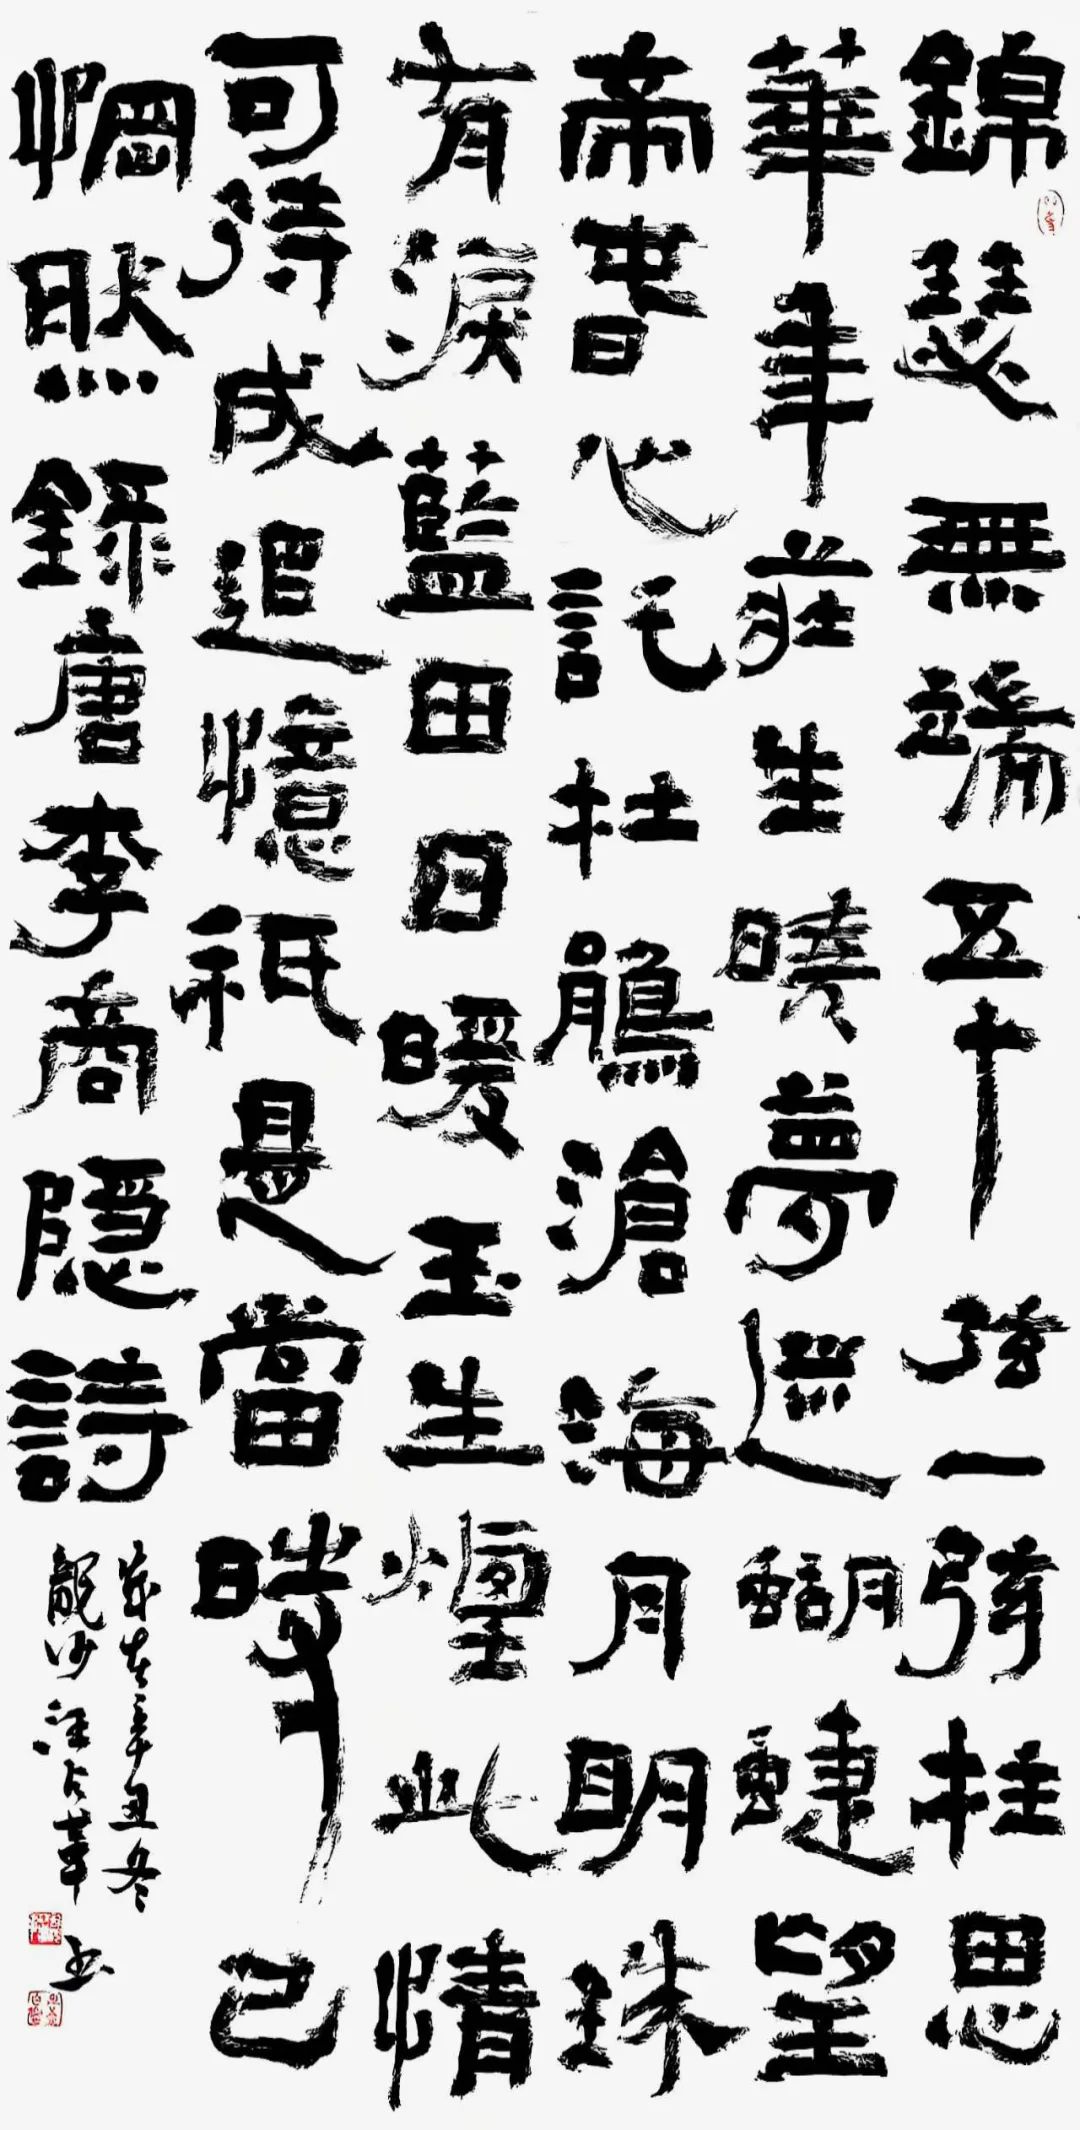 錦瑟無端五十弦一弦柱思
華年莊生曉夢迷蝴蝶望
帝春心託杜鵑滄海月明珠
有淚藍田日暖玉生煙此情
可待成追憶祇是當時已
惘然錄唐李商隱詩
歲在辛丑冬
龍沙汪占華書